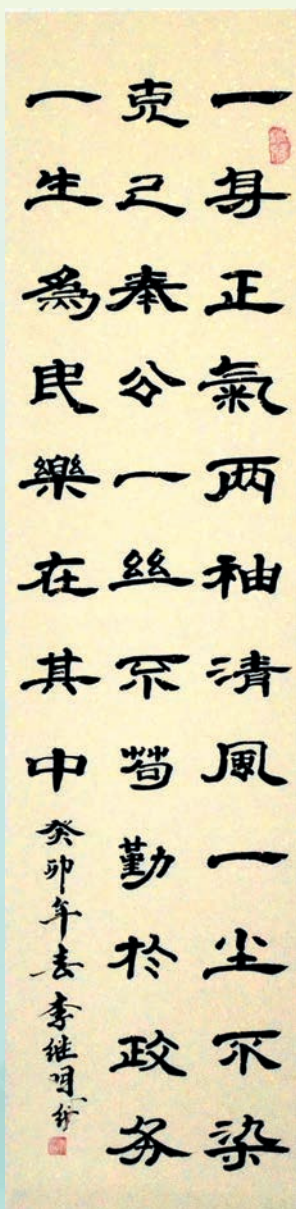 一身正氣两袖清風一尘不染
克己奉公一丝不苟勤於政务
一生為民樂在其中
癸卯年春李继明书